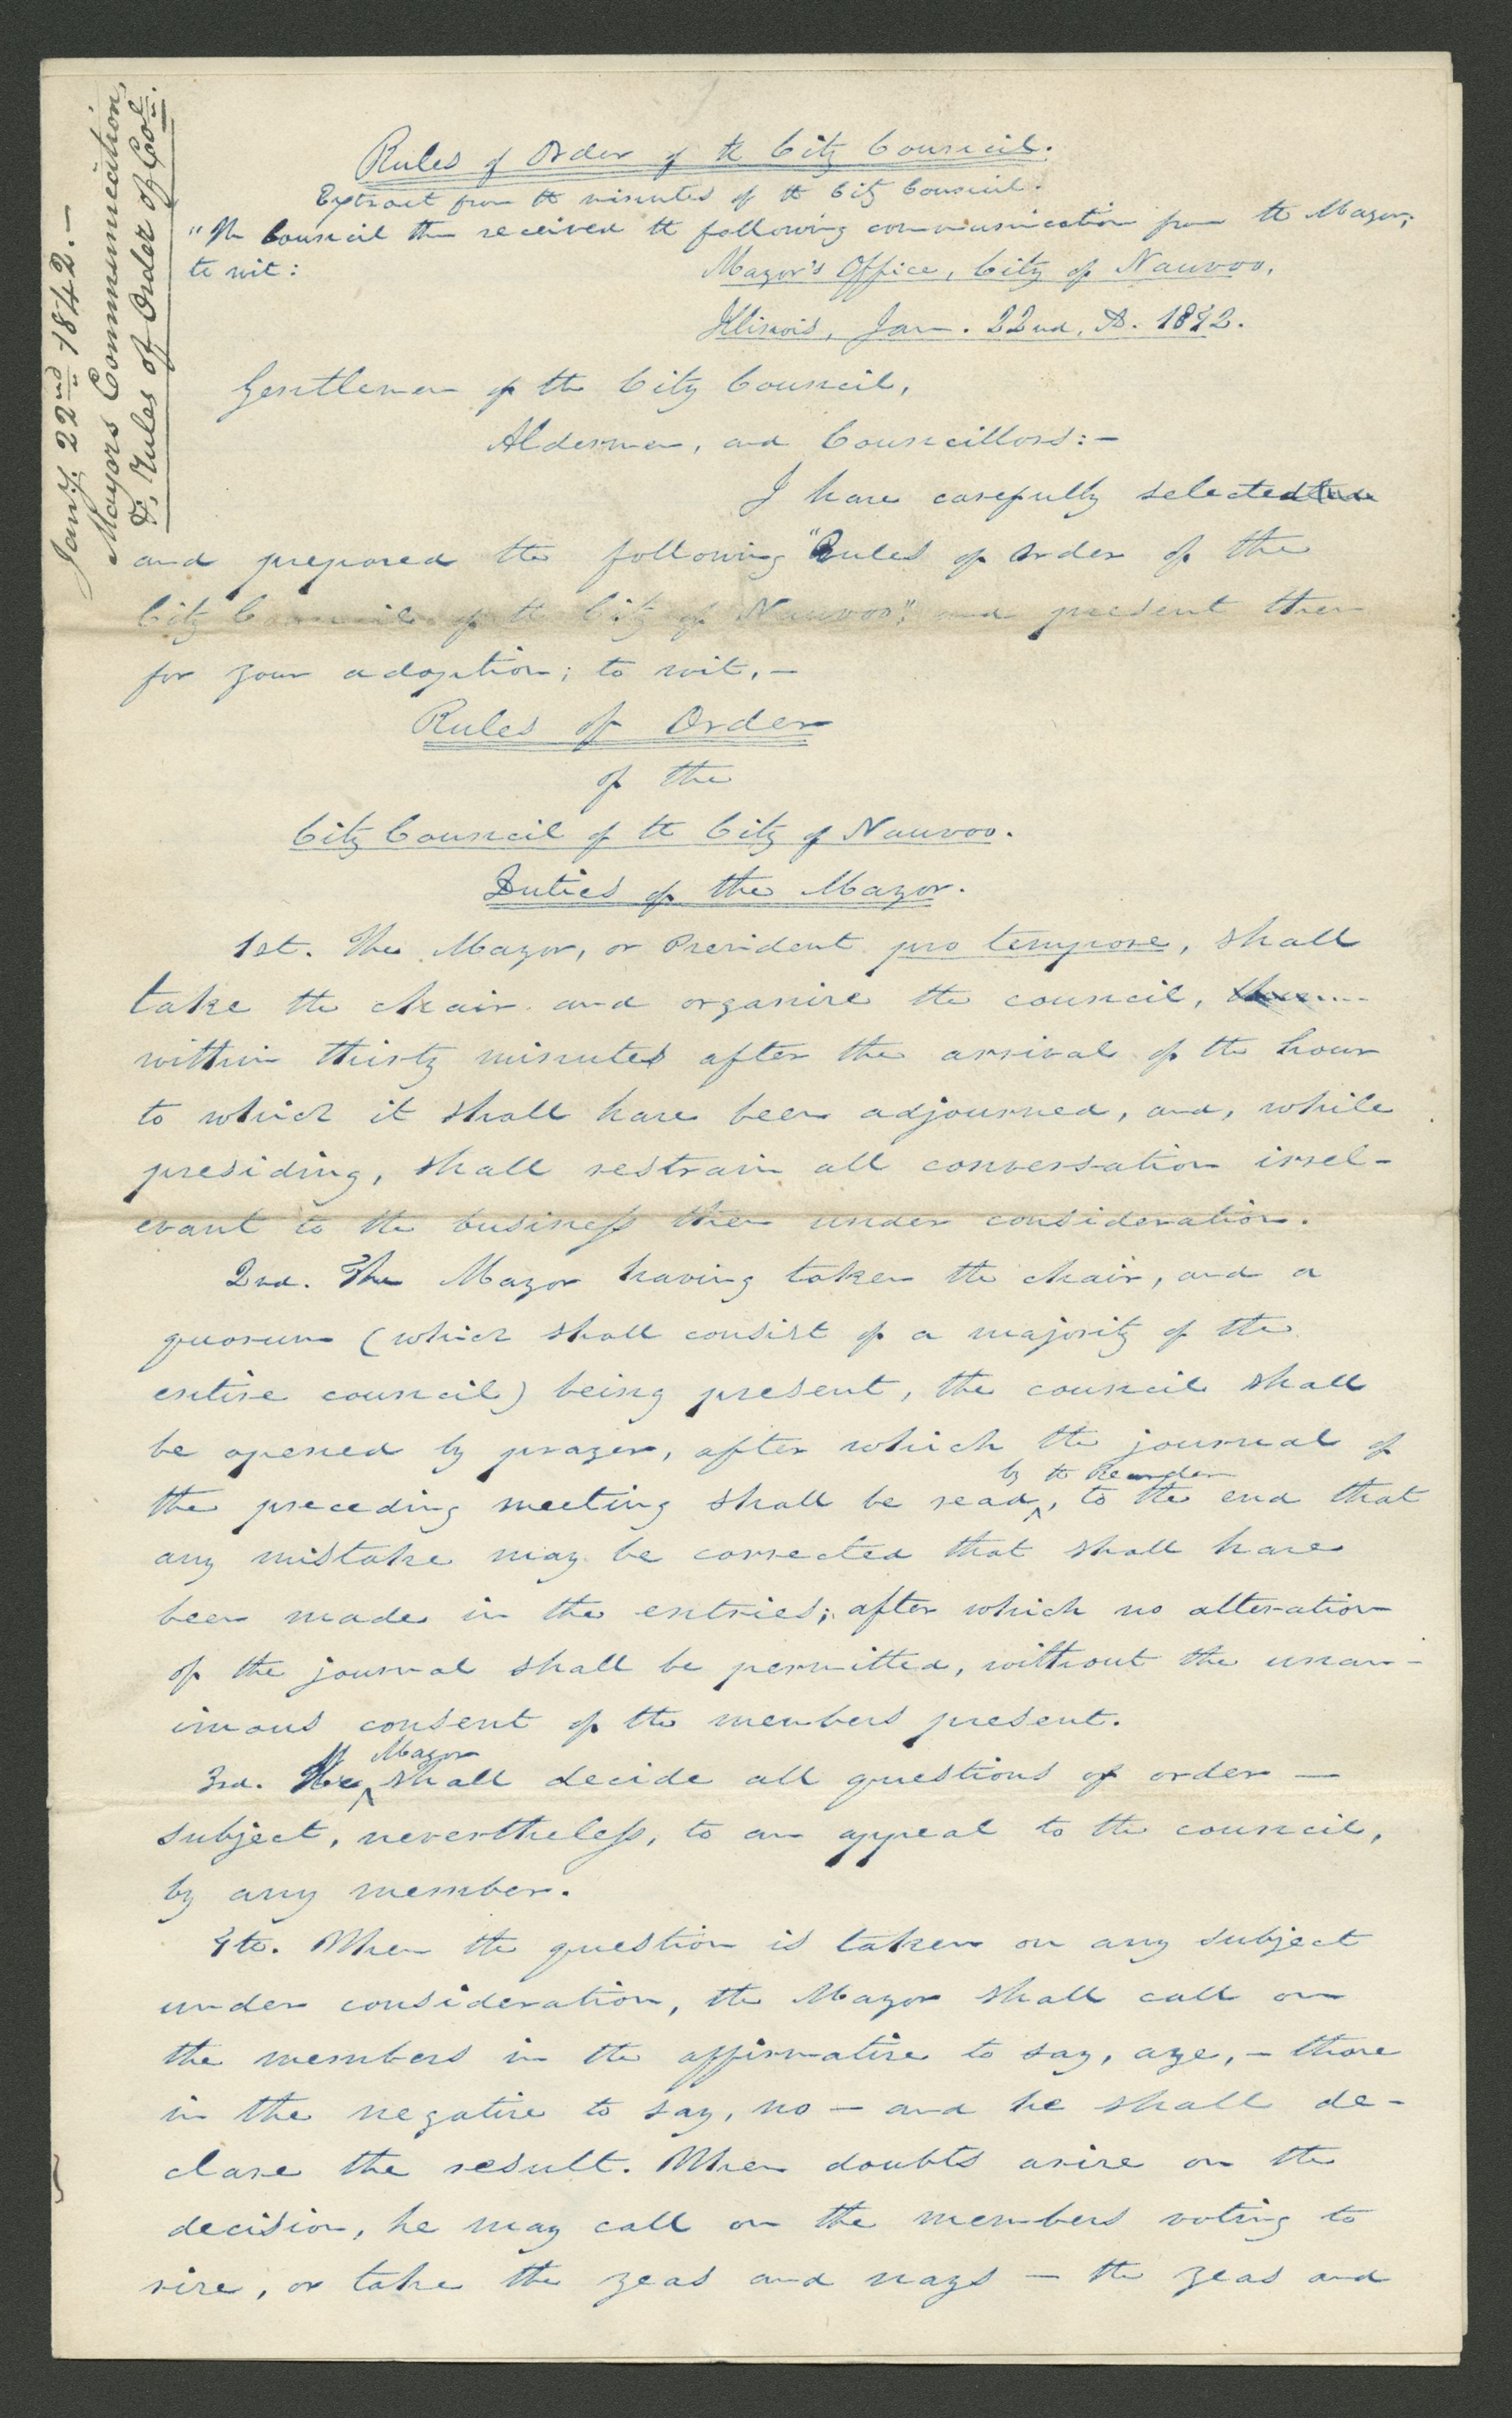 Jany. 22nd 1842.—
Mayors Communication,
& Rules of Order of Col.
Rules of Order of the City Council.
Extract from the minutes of the City Council.
"The Council then received the following communication from the Mayor;
to wit:
Mayor's Office, City of Nauvoo,
Illinois, Jan. 22nd, A. 1842.
Gentlemen of the City Council,
Aldermen, and Councillors:—
I have carefully selected
and prepared the following "Rules of Order of the
City Council of the City of Nauvoo", and present them
for your adoption; to wit,—
Rules of Order
of the
City Council of the City of Nauvoo.
Duties of the Mayor.
1st. The Mayor, or President pro tempore, shall
take the chair and organize the council,
within thirty minutes after the arrival of the hour
to which it shall have been adjourned, and, while
presiding, shall restrain all conversation irrel-
evant to the business then under consideration.
2nd. The Mayor having taken the chair, and a
quorum (which shall consist of a majority of the
entire council) being present, the council shall
be opened by prayer, after which the journal of
by the Recorder
the preceding meeting shall be read, to the end that
any mistake may be corrected that shall have
been made in the entries; after which no alteration
of the journal shall be permitted, without the unan-
imous consent of the members present.
Mayor
3rd. The shall decide all questions of order —
subject, nevertheless, to an appeal to the council,
by any member.
4th. When the question is taken on any subject
under consideration, the Mayor shall call on
the members in the affirmative to say, aye,— those
in the negative to say, no — and he shall de-
clare the result. When doubts arise on the
decision, he may call on the members voting to
rise, or take the yeas and nays — the yeas and